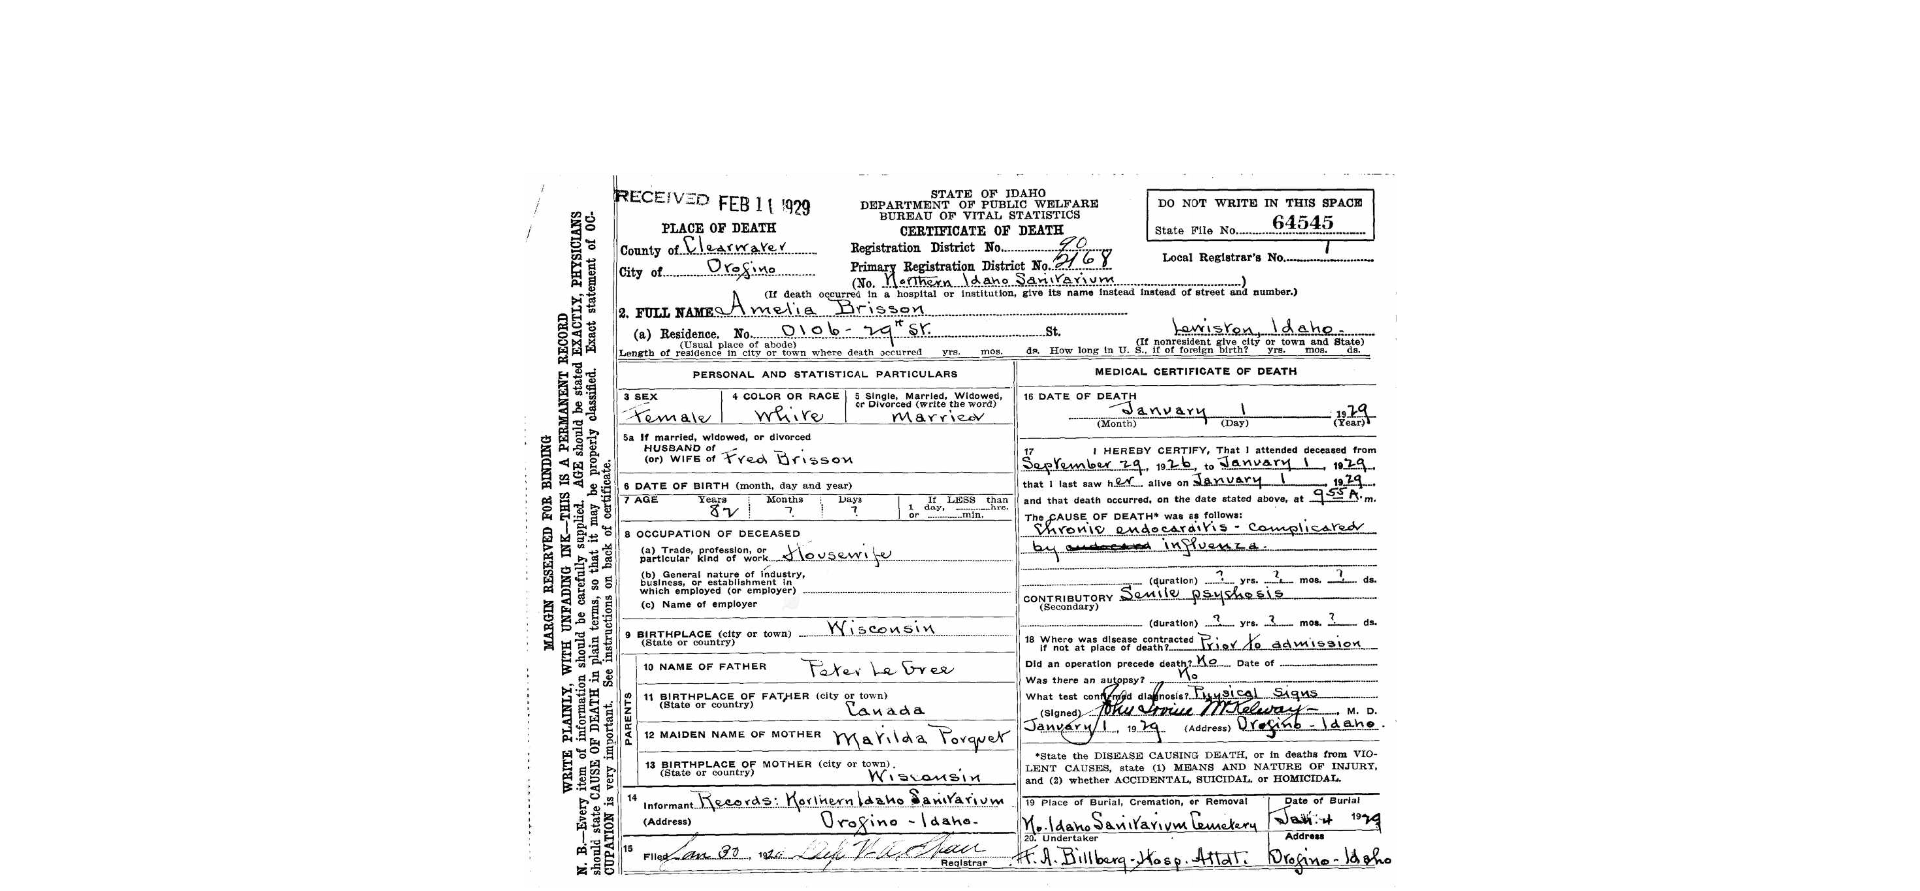 RECEIVED FEB 11 1929
STATE OF IDAHO
DEPARTMENT OF PUBLIC WELFARE
BUREAU OF VITAL STATISTICS
CERTIFICATE OF DEATH
DO NOT WRITE IN THIS SPACE
State File No. 64545
Local Registrar's No. 1
PLACE OF DEATH
County of Clearwater
City of Orofino
Registration District No. 90
Primary Registration District No. 2168
(No. Northern Idaho Sanitarium)
(If death occurred in a hospital or institution, give its name instead instead of street and number.)
2. FULL NAME Amelia Brisson
(a) Residence. No. 0106 - 29th St. St. Lewiston, Idaho.
(Usual place of abode) (If nonresident give city or town and State)
Length of residence in city or town where death occurred yrs. mos. ds. How long in U. S., if of foreign birth? yrs. mos. ds.
PERSONAL AND STATISTICAL PARTICULARS
3 SEX
Female
4 COLOR OR RACE
White
5 Single, Married, Widowed,
or Divorced (write the word)
Married
5a If married, widowed, or divorced
HUSBAND of
(or) WIFE of Fred Brisson
6 DATE OF BIRTH (month, day and year)
7 AGE Years Months Days If LESS than
82 ? ? 1 day, hrs.
or min.
8 OCCUPATION OF DECEASED
(a) Trade, profession, or
particular kind of work Housewife
(b) General nature of industry,
business, or establishment in
which employed (or employer)
(c) Name of employer
9 BIRTHPLACE (city or town) Wisconsin
(State or country)
PARENTS
10 NAME OF FATHER Peter Le Gree
11 BIRTHPLACE OF FATHER (city or town)
(State or country) Canada
12 MAIDEN NAME OF MOTHER Matilda Porquet
13 BIRTHPLACE OF MOTHER (city or town)
(State or country) Wisconsin
14 Informant Records: Northern Idaho Sanitarium
(Address) Orofino - Idaho.
15 Filed Jan 30, 192
Registrar
MEDICAL CERTIFICATE OF DEATH
16 DATE OF DEATH
January 1 1929
(Month) (Day) (Year)
17 I HEREBY CERTIFY, That I attended deceased from
September 29, 1926, to January 1, 1929,
that I last saw her alive on January 1, 1929,
and that death occurred, on the date stated above, at 9 55 A. m.
The CAUSE OF DEATH* was as follows:
Chronic endocarditis - complicated
by influenza.
(duration) ? yrs. ? mos. ? ds.
CONTRIBUTORY Senile psychosis
(Secondary)
(duration) ? yrs. ? mos. ? ds.
18 Where was disease contracted
if not at place of death? Prior to admission
Did an operation precede death? No Date of
Was there an autopsy? No
What test confirmed diagnosis? Physical Signs
(Signed) John McKelway M. D.
January 1, 1929 (Address) Orofino - Idaho.
*State the DISEASE CAUSING DEATH, or in deaths from VIO-
LENT CAUSES, state (1) MEANS AND NATURE OF INJURY,
and (2) whether ACCIDENTAL, SUICIDAL, or HOMICIDAL.
19 Place of Burial, Cremation, or Removal
No. Idaho Sanitarium Cemetery
Date of Burial
Jan. 4 1929
20. Undertaker
H. A. Billberg - Hosp. Attdt.
Address
Orofino - Idaho
MARGIN RESERVED FOR BINDING
WRITE PLAINLY, WITH UNFADING INK—THIS IS A PERMANENT RECORD
N. B.—Every item of information should be carefully supplied. AGE should be stated EXACTLY, PHYSICIANS
should state CAUSE OF DEATH in plain terms, so that it may be properly classified. Exact statement of OC-
CUPATION is very important. See instructions on back of certificate.